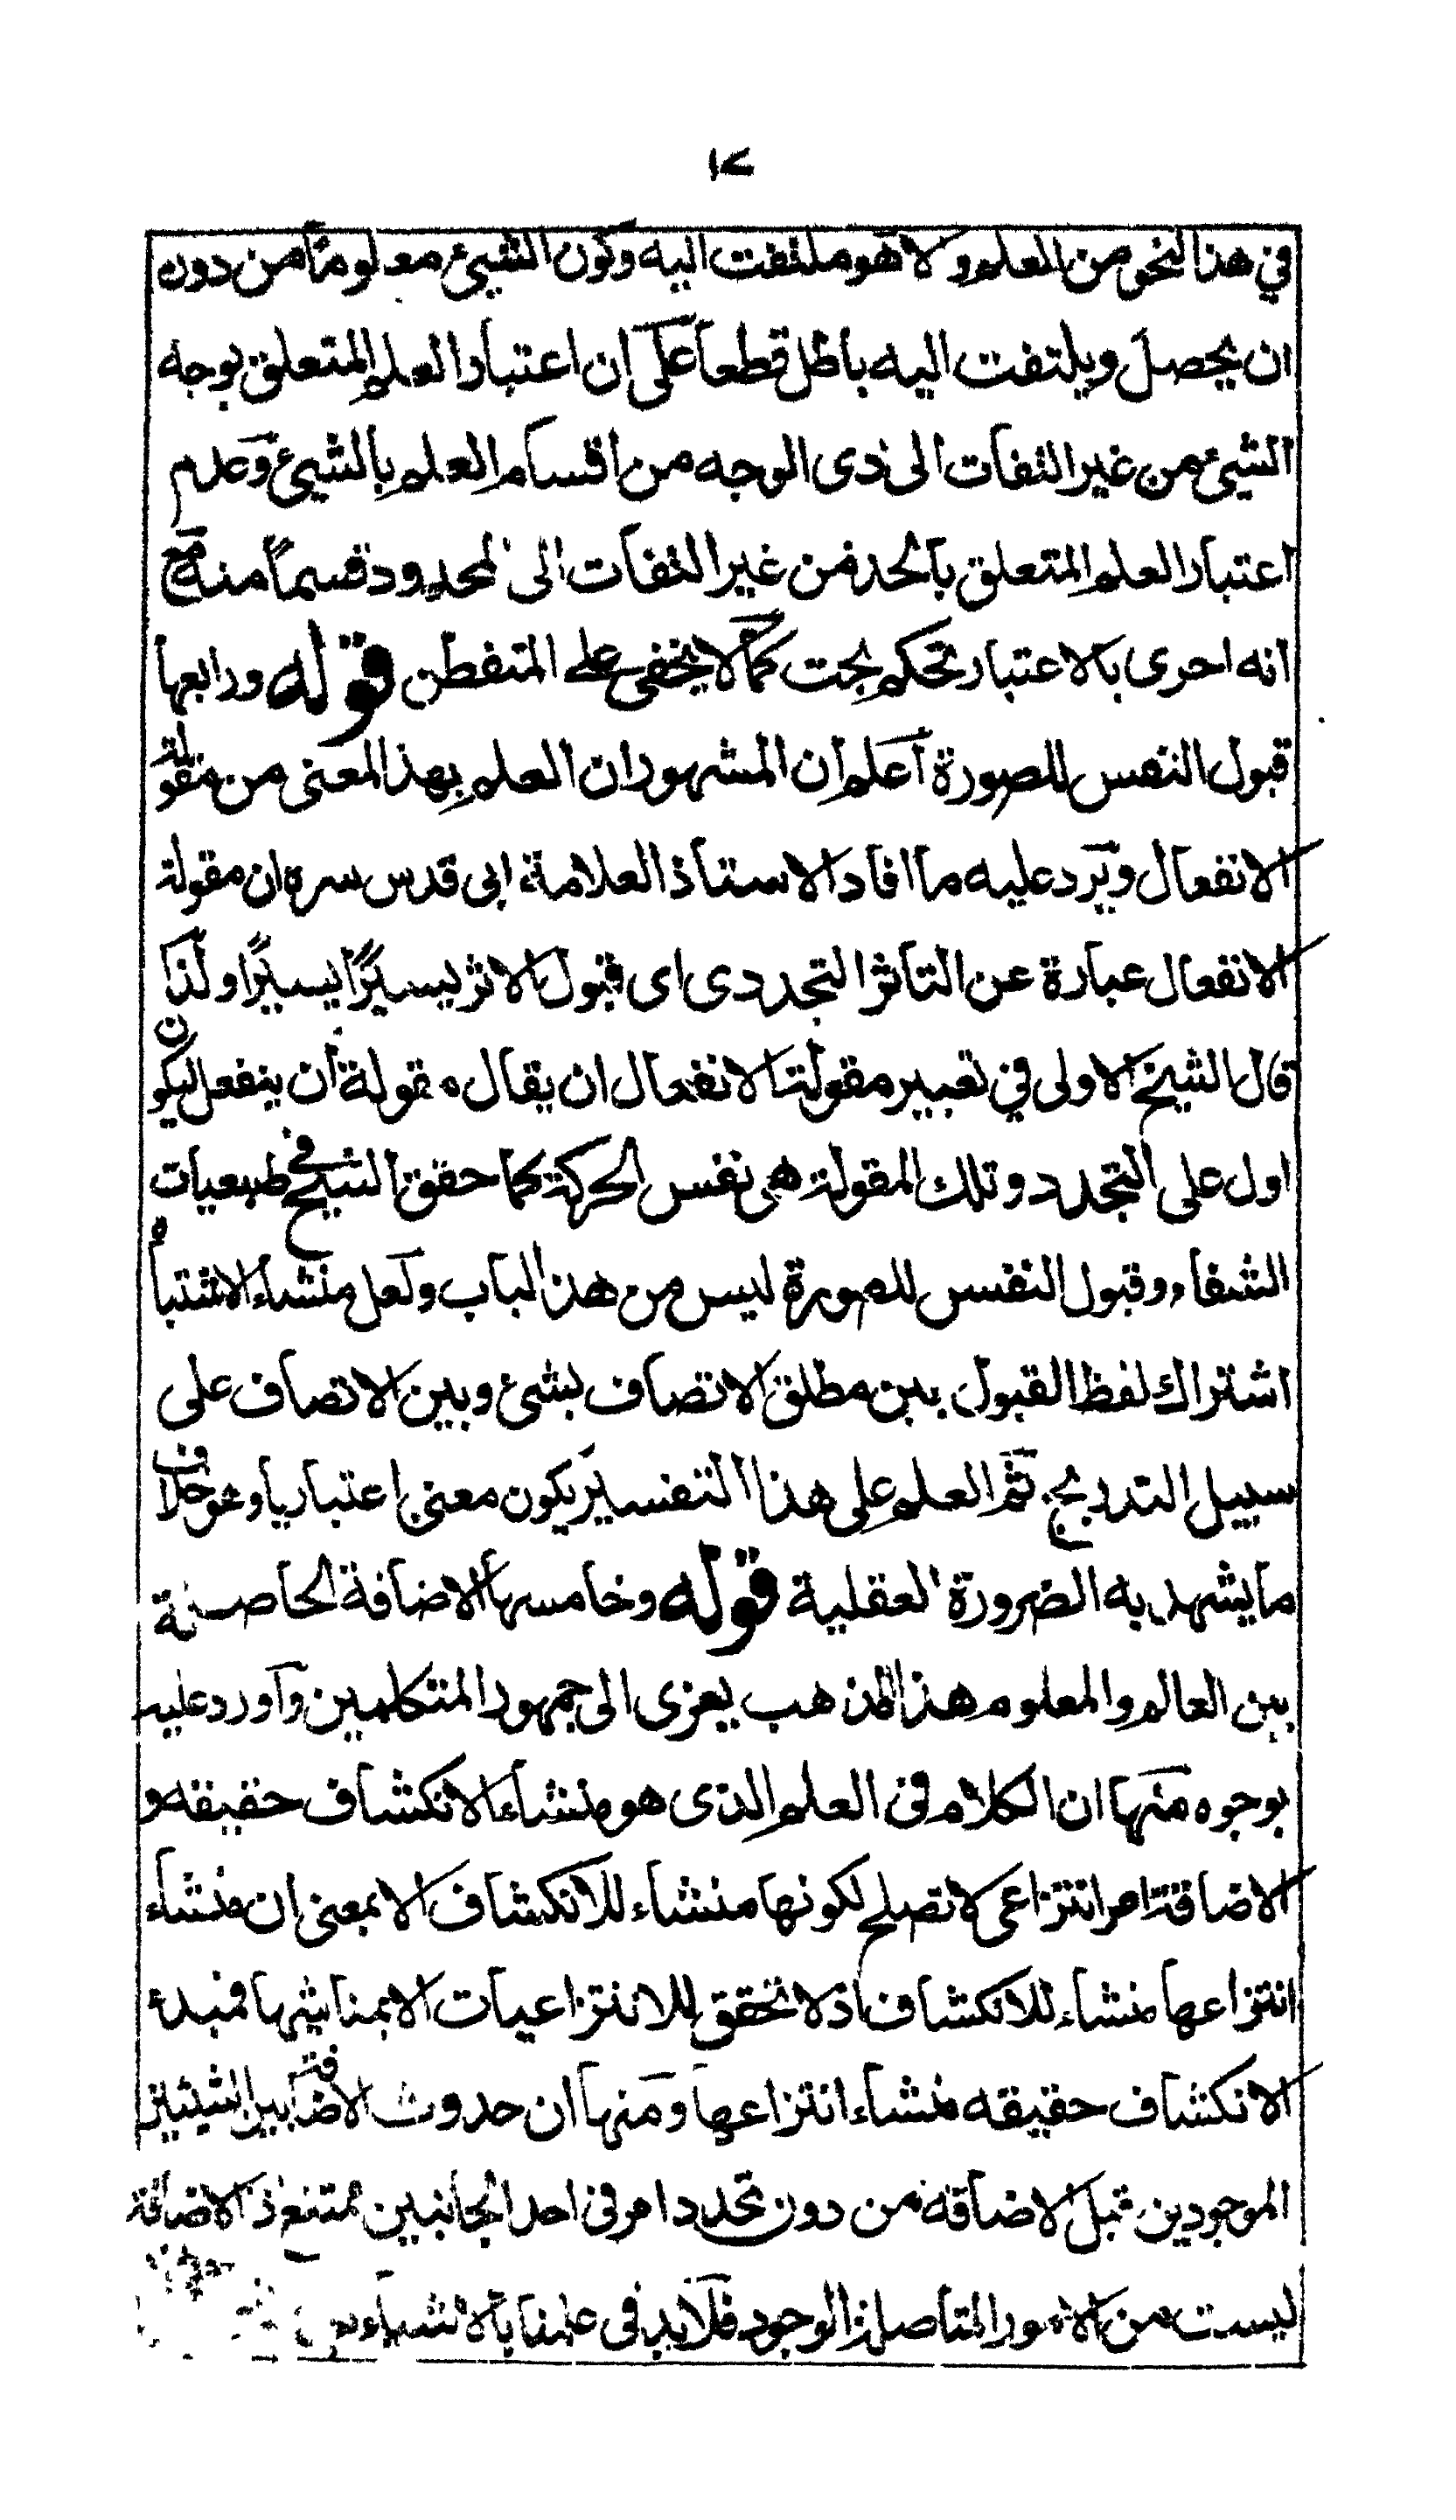 ١٧
في هذا النحو من العلم ولا هو ملتفت اليه وكون الشيئ معلوما من دون
ان يحصل ويلتفت اليه باطل قطعا على ان اعتبار العلم المتعلق بوجه
الشيئ من غير التفات الى ذى الوجه من اقسام العلم بالشيئ وعدم
اعتبار العلم المتعلق بالحد من غير التفات الى المحدود قسيماً منه مع
انه احرى بالاعتبار تحكم بحت كما لا يخفى على المتفطن قوله ورابعها
قبول النفس للصورة اعلم ان المشهور ان العلم بهذا المعنى من مقولة
الانفعال ويرد عليه ما افاد الاستاذ العلامة ابى قدس سره ان مقولة
الانفعال عبارة عن التاثر التجددى اى قبول الاثر يسيرًا يسيرًا ولذا
قال الشيخ الاولى في تعبير مقولة الانفعال ان يقال مقولة ان ينفعل ليكون
اول على التجدد وتلك المقولة هى نفس الحركة كما حقق الشيخ في طبعيات
الشفاء وقبول النفس للصورة ليس من هذا الباب ولعل منشاء الاشتباه
اشتراك لفظ القبول بين مطلق الاتصاف بشئ وبين الاتصاف على
سبيل التدريج ثم العلم على هذا التفسير يكون معنى اعتباريا وهو خلاف
ما يشهد به الضرورة العقلية قوله وخامسها الاضافة الحاصلة
بين العالم والمعلوم هذا المذهب يعزى الى جمهور المتكلمين واورد عليه
بوجوه منها ان الكلام فى العلم الذى هو منشاء الانكشاف حقيقه و
الاضافة امر انتزاعى لا تصلح لكونها منشاء للانكشاف الا بمعنى ان منشاء
انتزاعها منشاء للانكشاف اذ لا تحقق للانتزاعيات الا بمناشيها فمبدء
الانكشاف حقيقه منشاء انتزاعها ومنها ان حدوث الاضافة بين الشيئين
الموجودين قبل الاضافه من دون تجدد امر فى احد الجانبين ممتنع اذ الاضافة
ليست من الامور المتاصلة الوجود فلا بد فى علمنا بالاشياء من